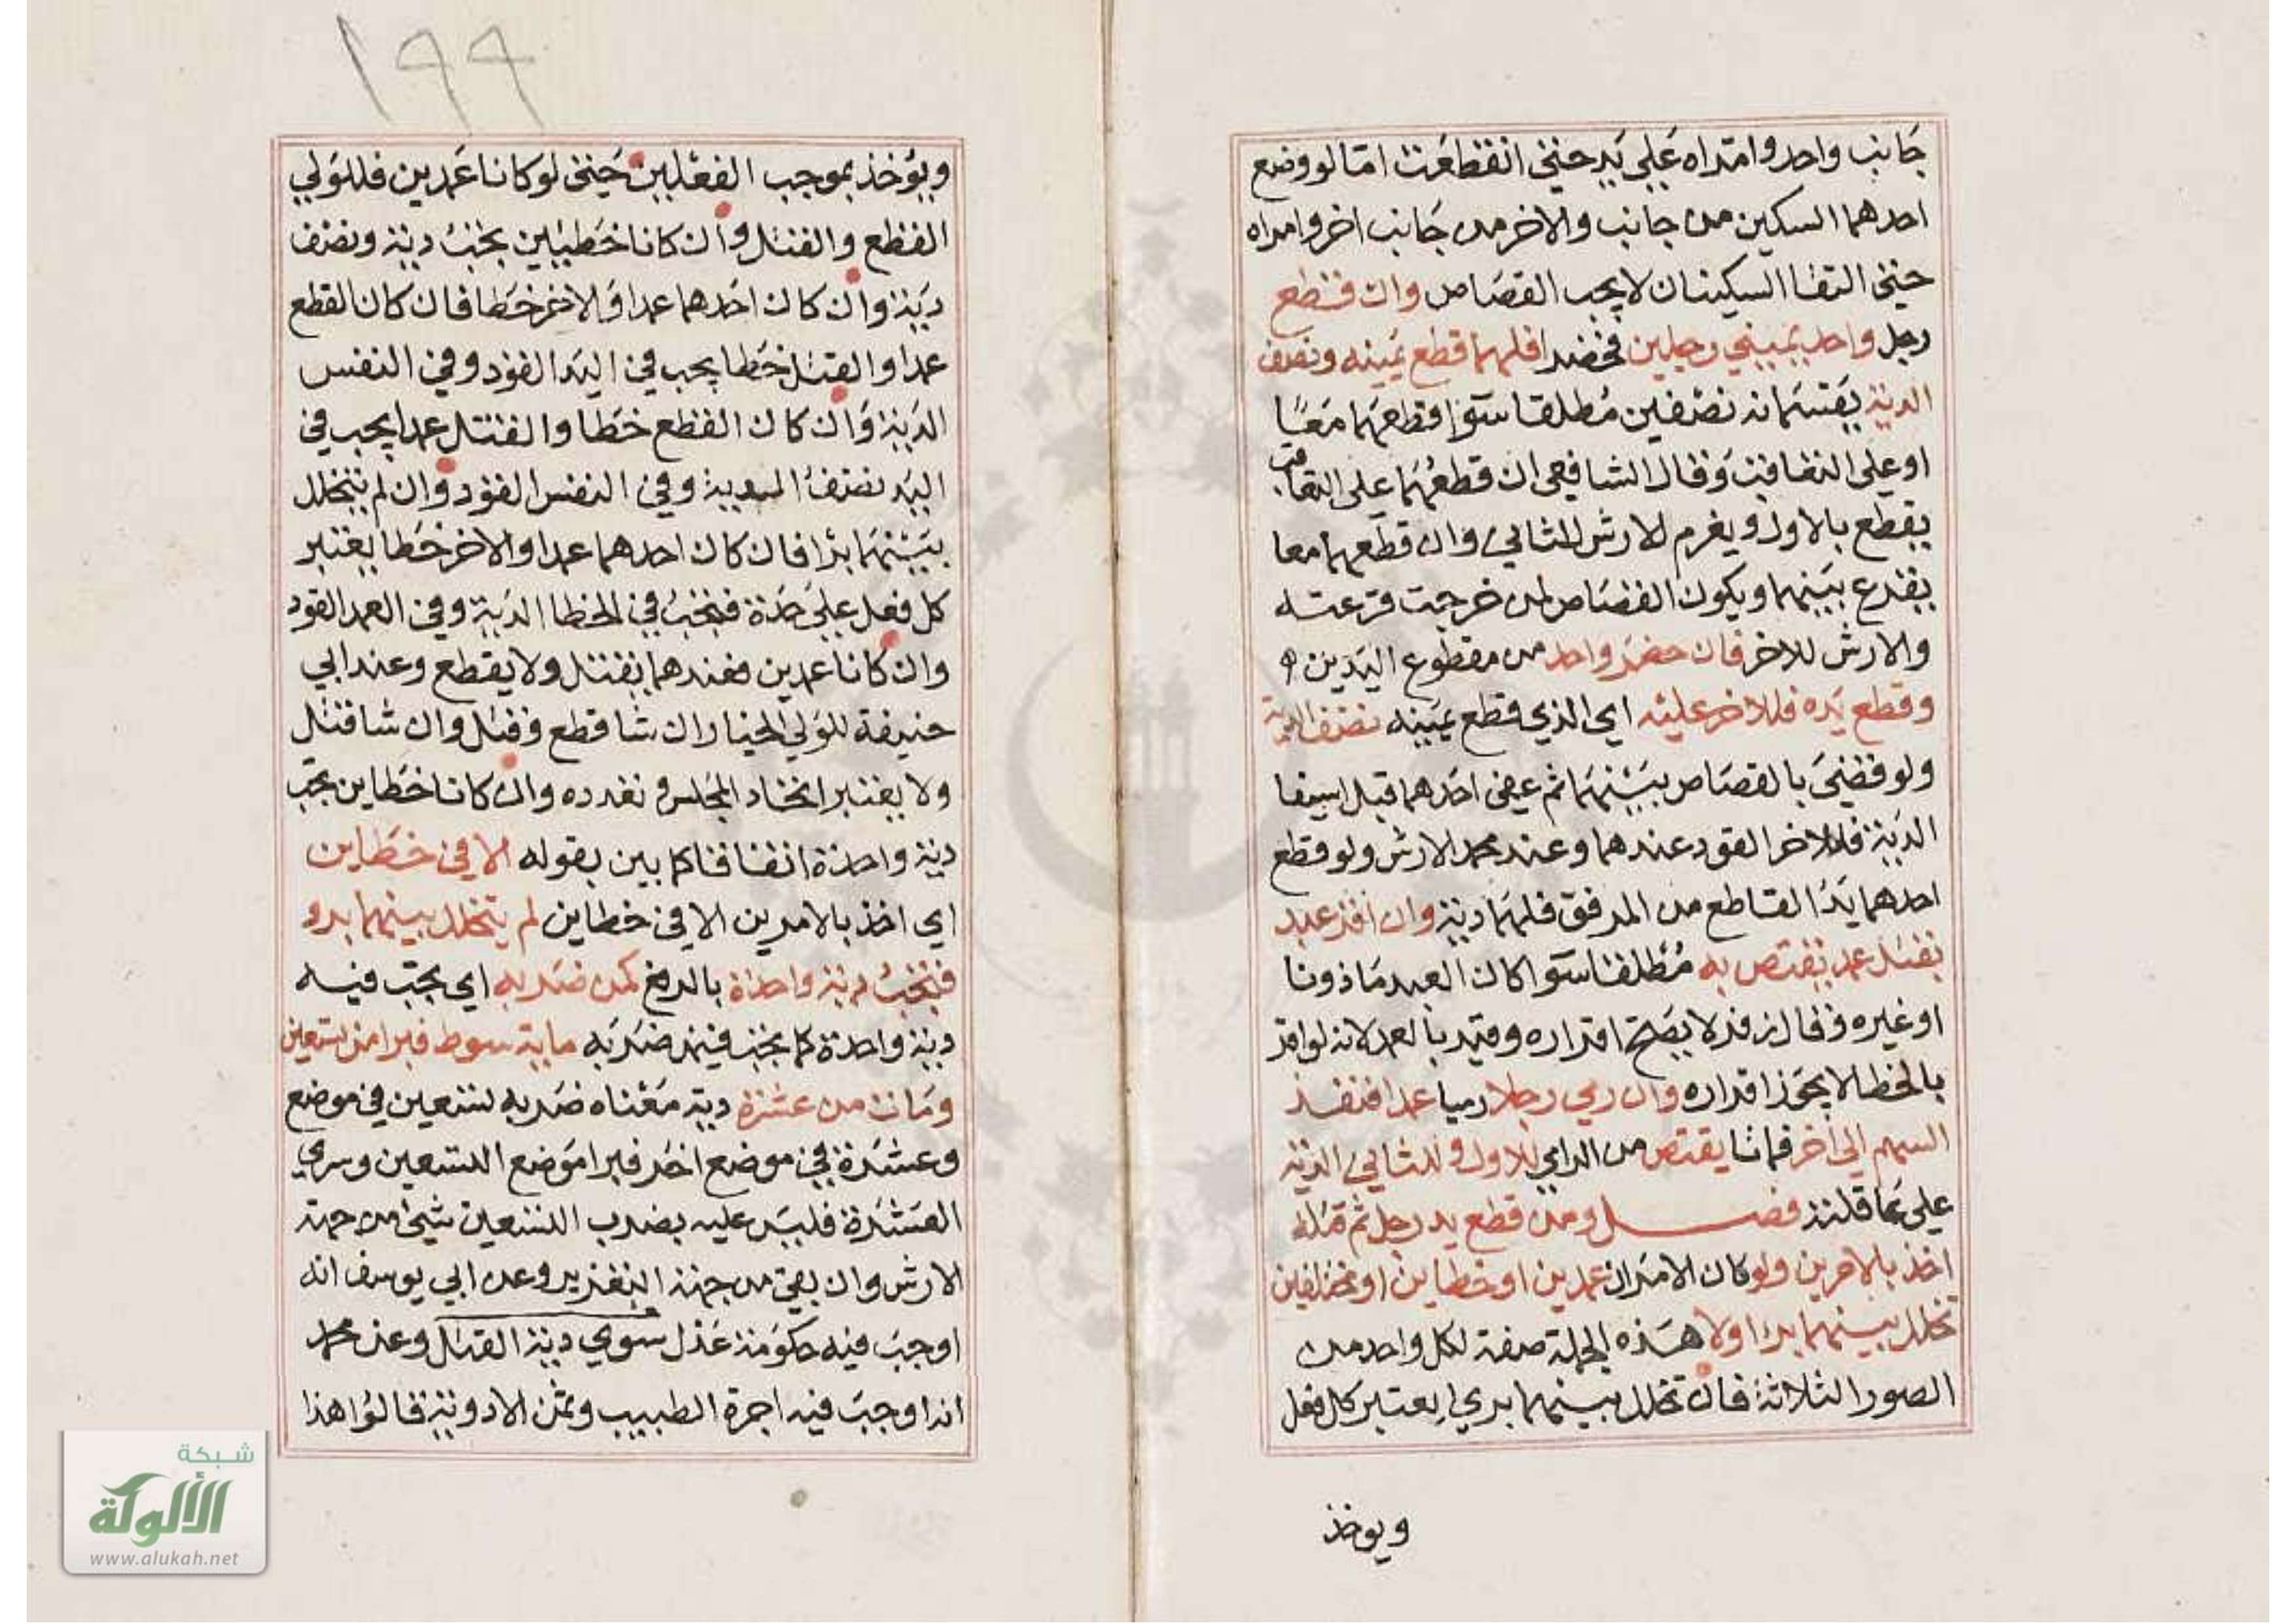 جانب واحد وامتراه علي يد حتي انقطعت اما لو وضع
احدهما السكين من جانب والاخر من جانب اخر وامراه
حتي التقا السكينان لا يجب القصاص وان قطع
رجل واحد يميني رجلين فحضرا فلهما قطع يمينه ونصف
الدية يقتسمانه نصفين مطلقا سوا قطعهما معًا
او علي التعاقب وقال الشافعي ان قطعهما علي التعاقب
يقطع بالاول ويغرم الارش للثاني وان قطعهما معا
يقرع بينهما ويكون القصاص لمن خرجت قرعته
والارش للاخر فان حضر واحد من مقطوع اليدين
وقطع يده فللاخر عليه اي الذي قطع يمينه نصف الدية
ولو قضي بالقصاص بينهما ثم عفي احدهما قبل استيفا
الدية فللاخر القود عندهما وعند محمد الارش ولو قطع
احدهما يد القاطع من المرفق فلهما دية وان اقر عبد
بقتل عمد يقتص به مطلقا سوا كان العبد ماذونا
او غيره وقال زفر لا يصح اقراره وقيد بالعمد لانه لو اقر
بالخطا لا يجوز اقراره وان رمي رجلا رميا عمدا فنفذ
السهم الي اخر فماتا يقتص من الرامي للاول وللثاني الدية
علي عاقلته فصل ومن قطع يد رجل ثم قتله
اخذ بالامرين ولو كان الامران عمدين او خطاين او مختلفين
تخلل بينهما برا اولا هذه الجملة صفة لكل واحد من
الصور الثلاثة فان تخلل بينهما بري يعتبر كل فعل
ويوخذ
١٩٩
ويؤخذ بموجب الفعلين حتي لو كانا عمدين فللولي
القطع والقتل وان كانا خطيئين يجب دية ونصف
دية وان كان احدهما عمدا والاخر خطا فان كان القطع
عمدا والقتل خطا يجب في اليد القود وفي النفس
الدية وان كان القطع خطا والقتل عمدا يجب في
اليد نصف الدية وفي النفس القود وان لم يتخلل
بينهما برا فان كان احدهما عمدا والاخر خطا يعتبر
كل فعل علي حدة فتجب في الخطا الدية وفي العمد القود
وان كانا عمدين فعندهما يقتل ولا يقطع وعند ابي
حنيفة للولي الخيار ان شا قطع وقتل وان شا قتل
ولا يعتبر اتحاد المجلس وتعدده وان كانا خطاين تجب
دية واحدة اتفاقا كما بين بقوله الا في خطاين
اي اخذ بالامرين الا في خطاين لم يتخلل بينهما برو
فتجب دية واحدة بالرفع كمن ضربه اي يجب فيه
دية واحدة كما يجب فيمن ضربه ماية سوط فبرا من تسعين
ومات من عشرة دية معناه ضربه تسعين في موضع
وعشرة في موضع اخر فبرا موضع التسعين وسري
العشرة فليس عليه بضرب التسعين شيء من جهة
الارش وان بقي من جهة التعزير وعن ابي يوسف انه
اوجب فيه حكومة عدل سوي دية القتل وعن محمد
انه اوجب فيه اجرة الطبيب وثمن الادوية قالوا هذا
شبكة
الألوكة
www.alukah.net